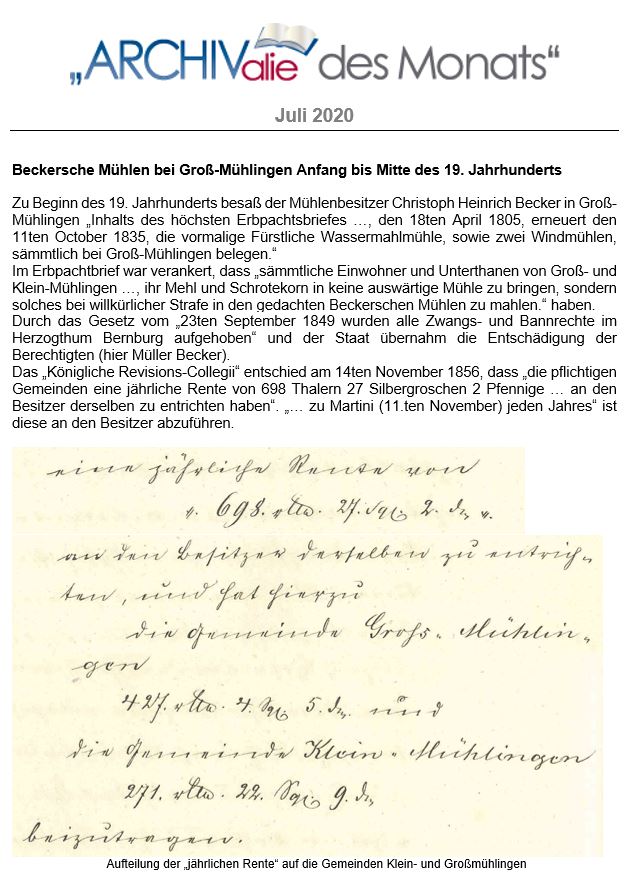 „ARCHIValie des Monats“
Juli 2020
Beckersche Mühlen bei Groß-Mühlingen Anfang bis Mitte des 19. Jahrhunderts
Zu Beginn des 19. Jahrhunderts besaß der Mühlenbesitzer Christoph Heinrich Becker in Groß-
Mühlingen „Inhalts des höchsten Erbpachtsbriefes …, den 18ten April 1805, erneuert den
11ten October 1835, die vormalige Fürstliche Wassermahlmühle, sowie zwei Windmühlen,
sämmtlich bei Groß-Mühlingen belegen.“
Im Erbpachtbrief war verankert, dass „sämmtliche Einwohner und Unterthanen von Groß- und
Klein-Mühlingen …, ihr Mehl und Schrotekorn in keine auswärtige Mühle zu bringen, sondern
solches bei willkürlicher Strafe in den gedachten Beckerschen Mühlen zu mahlen.“ haben.
Durch das Gesetz vom „23ten September 1849 wurden alle Zwangs- und Bannrechte im
Herzogthum Bernburg aufgehoben“ und der Staat übernahm die Entschädigung der
Berechtigten (hier Müller Becker).
Das „Königliche Revisions-Collegii“ entschied am 14ten November 1856, dass „die pflichtigen
Gemeinden eine jährliche Rente von 698 Thalern 27 Silbergroschen 2 Pfennige … an den
Besitzer derselben zu entrichten haben“. „… zu Martini (11.ten November) jeden Jahres“ ist
diese an den Besitzer abzuführen.
eine jährliche Rente von
698. rtlr. 27. Sgr. 2. dn.
an den Besitzer derselben zu entrich-
ten, und hat hierzu
die Gemeinde Grohs-Mühlin-
gen
427. rtlr. 4. Sgr. 5. dn. und
die Gemeinde Klein-Mühlingen
271. rtlr. 22. Sgr. 9. dn
beizutragen.
Aufteilung der „jährlichen Rente“ auf die Gemeinden Klein- und Großmühlingen